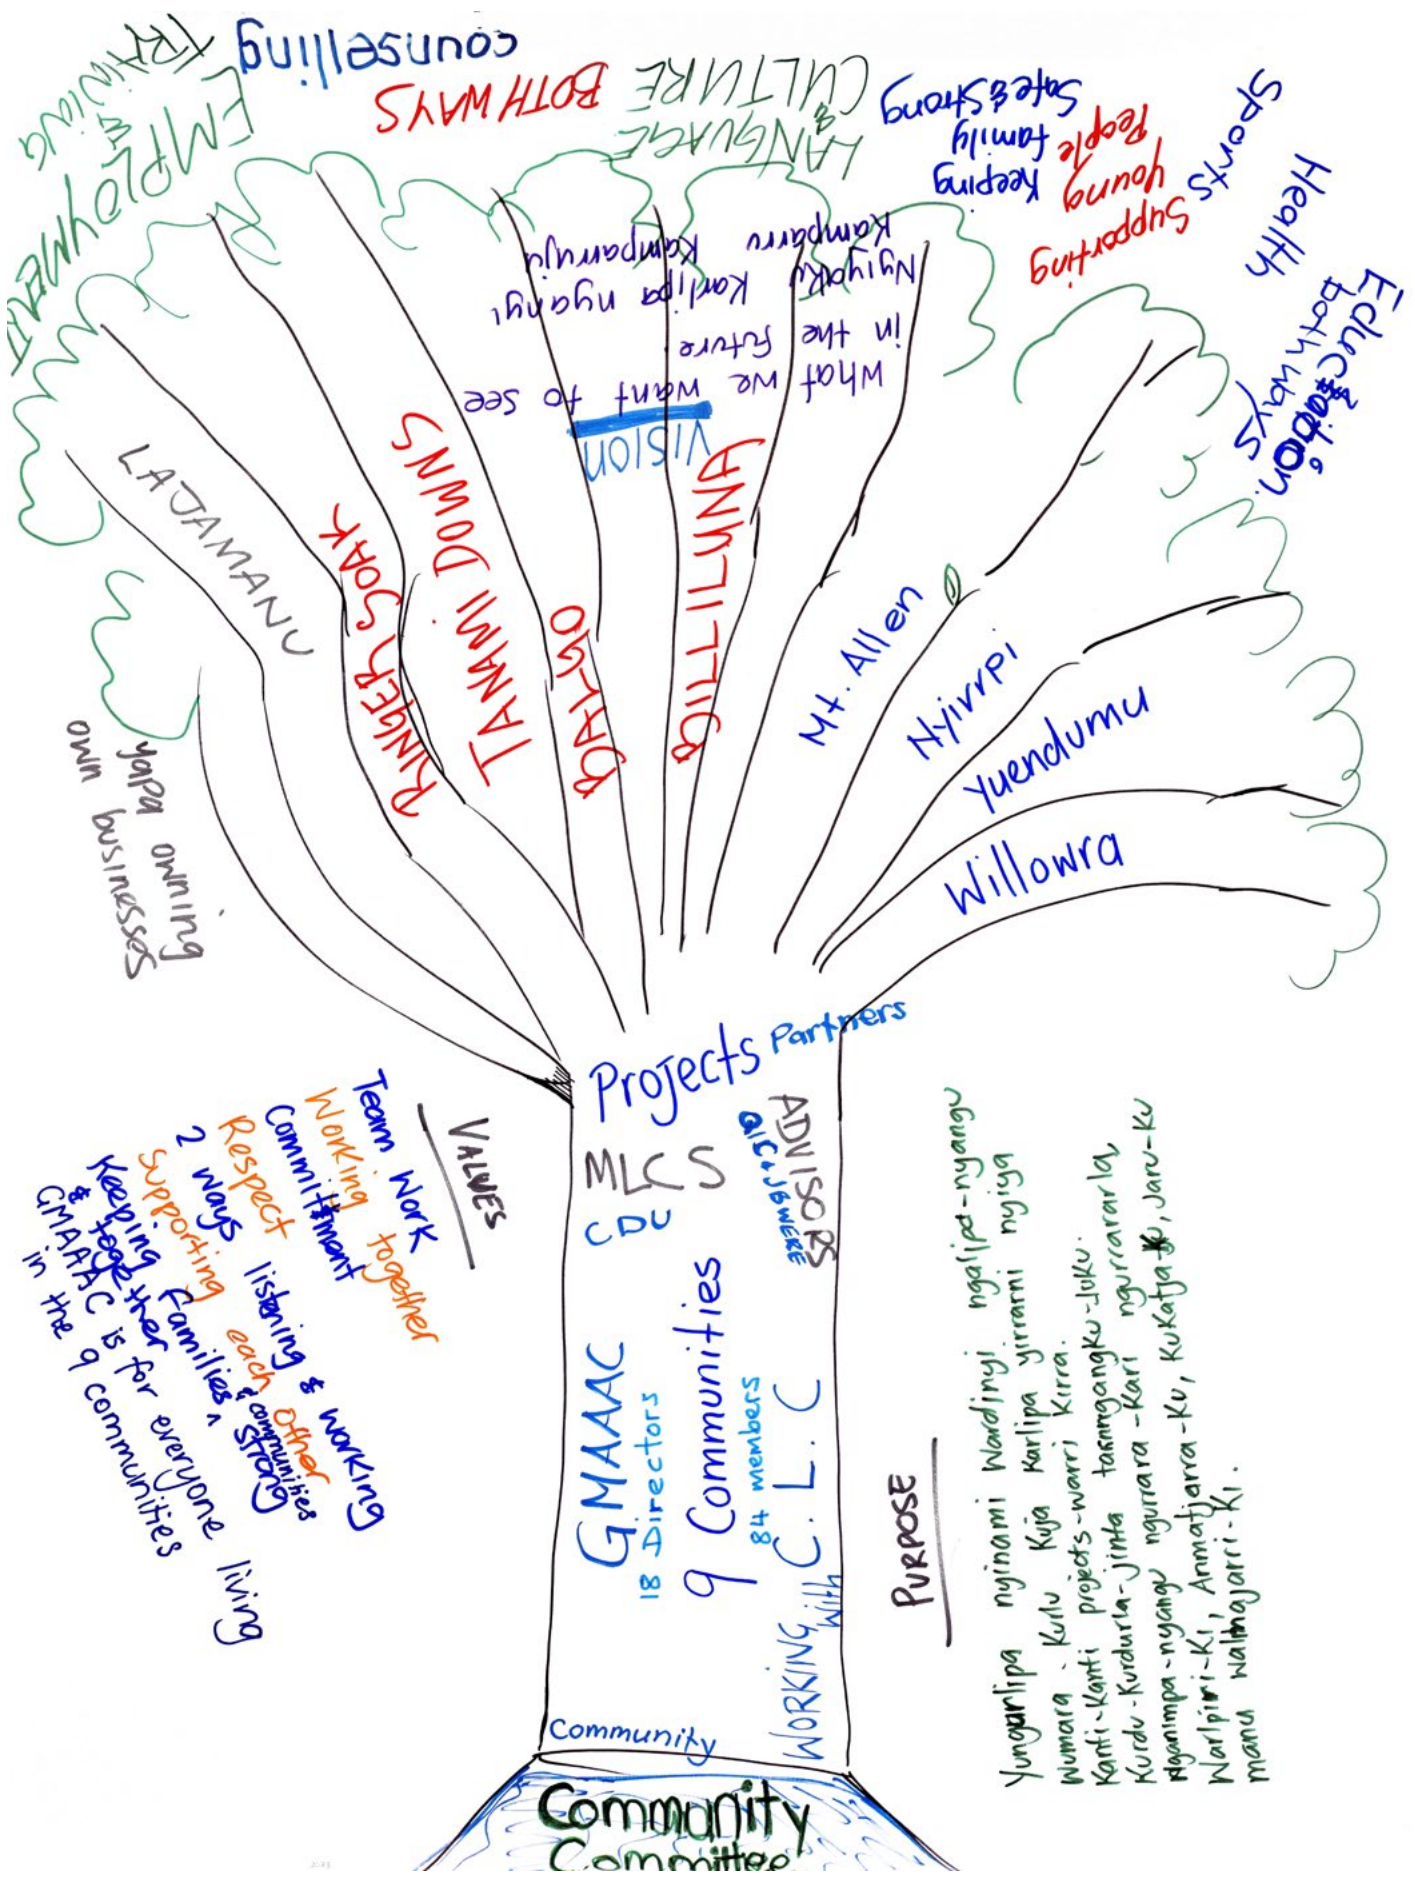 counselling
BOTH WAYS
LANGUAGE
&
CULTURE
EMPLOYMENT
&
TRAINING
Keeping
family
Safe & Strong
Supporting
young
People
Sports
Health
Education
both ways
VISION
What we want to see
in the future
Nyiyaku Karlipa nyanyi
Kamparru Kamparruju
LAJAMANU
RINGER SOAK
TANAMI DOWNS
BALGO
BILLILUNA
Mt. Allen
Nyirrpi
Yuendumu
Willowra
yapa owning
own businesses
Projects
Partners
MLCS
CDU
ADVISORS
GIC & JBWERE
GMAAAC
18 Directors
9 Communities
84 members
WORKING with C.L.C
Community
Community
Committee
VALUES
Team Work
Working together
Committment
Respect
2 ways listening & working
Supporting each other
Keeping families & communities strong
& together
GMAAAC is for everyone living
in the 9 communities
PURPOSE
Yungurlipa nyinami Wardinyi ngalipa-nyangu
Wumara-Kurlu Kuja Karlipa yirrarni nyiya
Kanti-Kanti projects-warri Kirra.
Kurdu-Kurdurla-jinta tarnngangku-juku.
Nganimpa-nyangu ngurrara-Kari ngurrararla
Warlpiri-Ki, Anmatjarra-Ku, Kukatja-Ku, Jaru-Ku
manu Walmajarri-Ki.